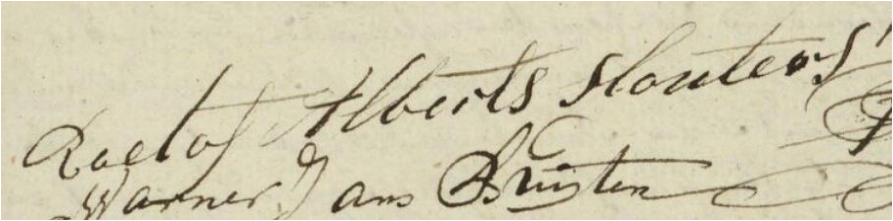 Roelof Alberts Slouters
Warner Jans Bruisten